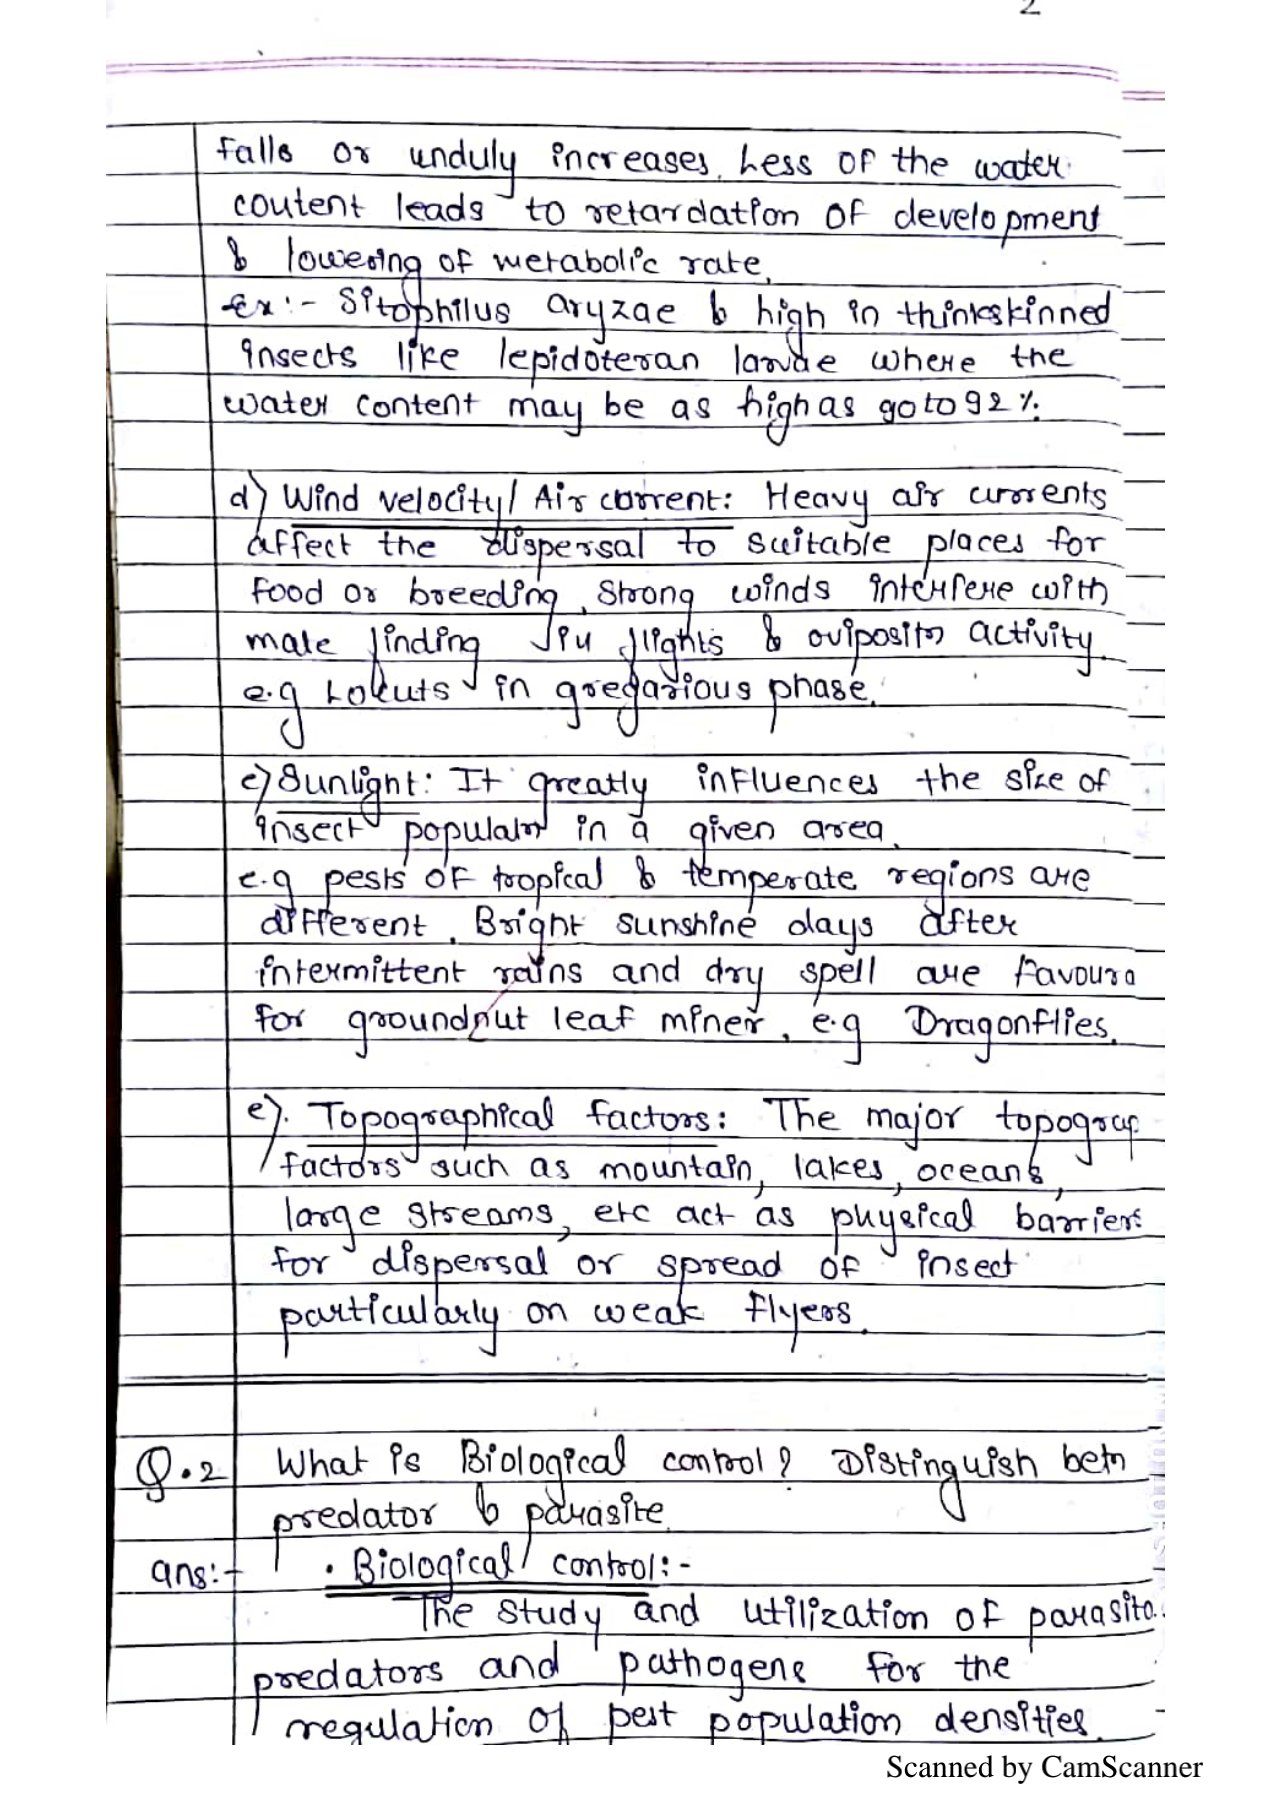 2
falls or unduly increases. Less of the water
coutent leads to retardation of development
& lowering of metabolic rate.
Ex:- Sitophilus aryzae & high in thinkskinned
insects like lepidoteran larvae where the
water content may be as high as go to 92 %.
d) Wind velocity / Air corrent: Heavy air currents
affect the dispersal to suitable places for
food or breeding. Strong winds interfere with
male finding flights & ovipositn activity.
e.g Lokuts in gregarious phase.
e) Sunlight: It greatly influences the size of
insect populatn in a given area.
e.g pests of tropical & temperate regions are
different. Bright sunshine days after
intermittent rains and dry spell are favoura
for groundnut leaf miner. e.g Dragonflies.
e). Topographical factors: The major topograp
factors such as mountain, lakes, oceans,
large streams, etc act as physical barriers
for dispersal or spread of insect
particularly on weak flyers.
Q.2 What is Biological control? Distinguish betn
predator & parasite.
ans:- • Biological control:-
The study and utilization of parasito
predators and pathogens for the
regulation of pest population densities.
Scanned by CamScanner